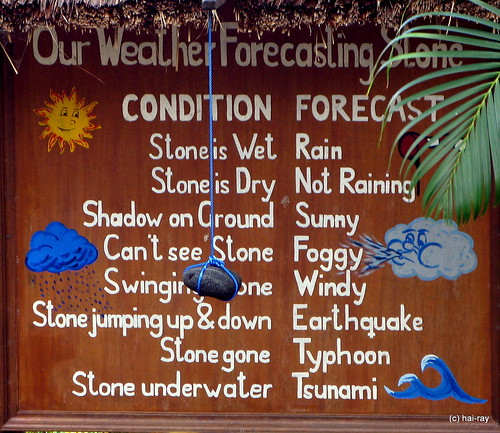 Our Weather Forecasting Stone
CONDITION FORECAST
Stone is Wet Rain
Stone is Dry Not Raining
Shadow on Ground Sunny
Can't see Stone Foggy
Swinging Stone Windy
Stone jumping up & down Earthquake
Stone gone Typhoon
Stone underwater Tsunami
(c) hai-ray